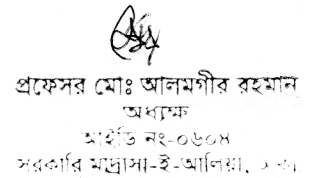 প্রফেসর মোঃ আলমগীর রহমান
অধ্যক্ষ
আইডি নং-০৬০৪
সরকারি মাদ্রাসা-ই-আলিয়া,